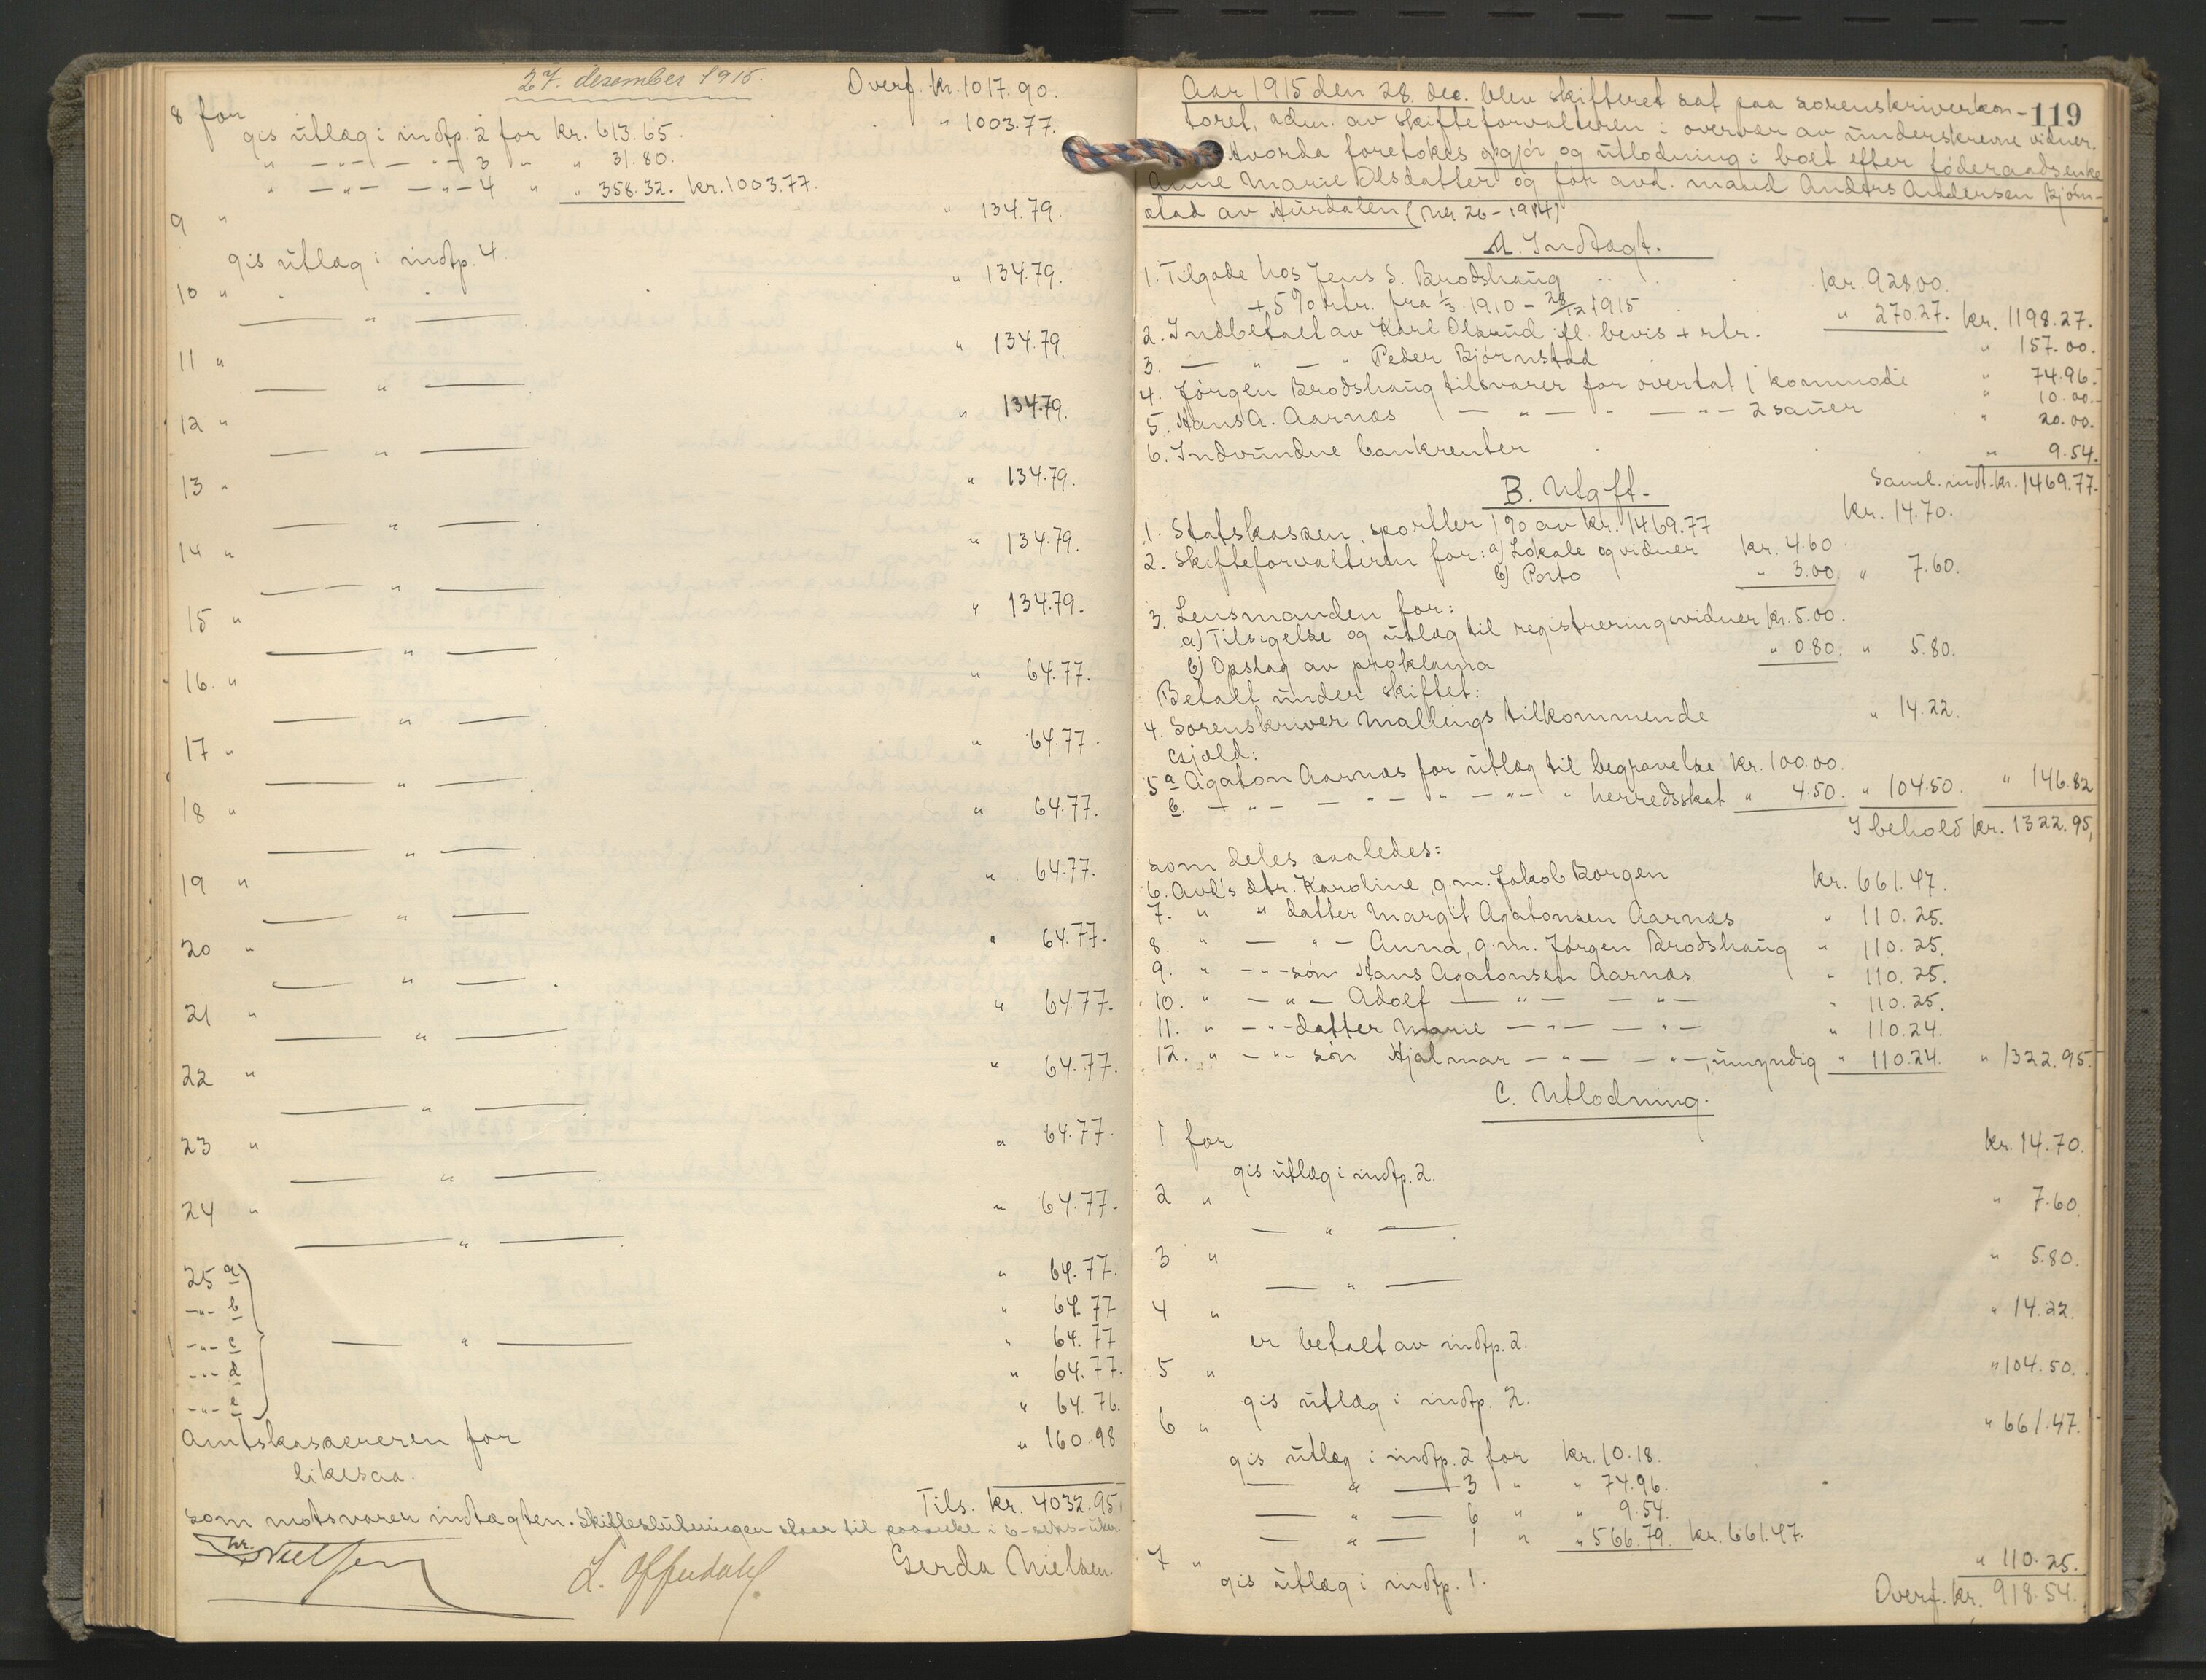 27. desember 1915.
Overf. kr. 1017.90.
8 for " 1003.77.
gis utlæg i indtp. 2 for kr. 613.65.
" — " — — " — 3 " " 31.80.
" — " — — " — 4 " " 358.32. kr. 1003.77.
9 " " 134.79.
gis utlæg i indtp. 4
10 " " 134.79.
— " —
11 " " 134.79.
— " —
12 " " 134.79.
— " —
13 " " 134.79.
— " —
14 " " 134.79.
— " —
15 " " 134.79.
— " —
16. " " 64.77.
— " —
17 " " 64.77.
— " —
18 " " 64.77.
— " —
19 " " 64.77.
— " —
20 " " 64.77.
— " —
21 " " 64.77.
— " —
22 " " 64.77.
— " —
23 " " 64.77.
— " —
24 " " 64.77.
— " —
25 a " 64.77.
— " — b " 64.77
— " — c — " — " 64.77
— " — d " 64.77.
— " — e " 64.76.
Amtskassereren for " 160.98
likesaa.
Tils. kr. 4032.95,
som motsvarer indtægten. Skifteslutningen staar til paaanke i 6-seks-uker
Nielsen L. Offerdahl Gerda Nielsen.
119
Aar 1915 den 28. dec. blev skifteret sat paa sorenskriverkon-
toret, adm. av skifteforvalteren i overvær av underskrevne vidner.
Hvorda foretokes opgjør og utlodning i boet efter føderaadsenke
Anne Marie Olsdatter og før avd. mand Anders Andersen Bjørn-
stad av Hurdalen (nr 26-1914)
A. Indtægt.
1. Tilgode hos Jens S. Brodshaug kr. 928.00.
+ 5% rtr. fra 1/3 1910 - 28/12 1915 " 270.27. kr. 1198.27.
2. Indbetalt av Karl Olsrud ifl. bevis + rtr. " 157.00.
3. — " — " Peder Bjørnstad " 74.96.
4. Jørgen Brodshaug tilsvarer for overtat 1 kommode " 10.00.
5. Hans A. Aarnæs — " — " — " — 2 sauer " 20.00.
6. Indvundne bankrenter " 9.54.
Saml. indt. kr. 1469.77.
B. Utgift.
1. Statskassen, sportler 1% av kr. 1469.77 kr. 14.70.
2. Skifteforvalteren for: a) Lokale og vidner kr. 4.60
b) Porto " 3.00. " 7.60.
3. Lensmanden for:
a) Tilsigelse og utlæg til registreringsvidner kr. 5.00.
b) Opslag av proklama " 0.80. " 5.80.
Betalt under skiftet:
4. Sorenskriver Mallings tilkommende " 14.22.
Gjæld:
5 a Agaton Aarnæs for utlæg til begravelse kr. 100.00.
b. — " — — " — " — " — " herredsskat " 4.50. " 104.50. " 146.82
I behold kr. 1322.95,
som deles saaledes:
6. Avd's dtr. Karoline, g.m. Jakob Borgen kr. 661.47.
7. " " datter Margit Agatonsen Aarnæs " 110.25.
8. " — " — Anna, g.m. Jørgen Brodshaug " 110.25.
9. " — " — søn Hans Agatonsen Aarnæs " 110.25.
10. " — " — Adolf — " — — " — " 110.25.
11. " — " — datter Marie — " — — " — " 110.24.
12. " — " — søn Hjalmar — " — — " —, umyndig " 110.24. " 1322.95.
C. Utlodning.
1 for kr. 14.70.
gis utlæg i indtp. 2.
2 " " 7.60.
— " —
3 " " 5.80.
— " —
4 " " 14.22.
er betalt av indtp. 2.
5 " " 104.50.
gis utlæg i indtp. 2.
6 " " 661.47.
gis utlæg i indtp. 2 for kr. 10.18.
— " — 3 " " 74.96.
— " — 6 " " 9.54.
— " — 1 " " 566.79. kr. 661.47.
7 " " 110.25.
gis utlæg i indtp. 1.
Overf. kr. 918.54.